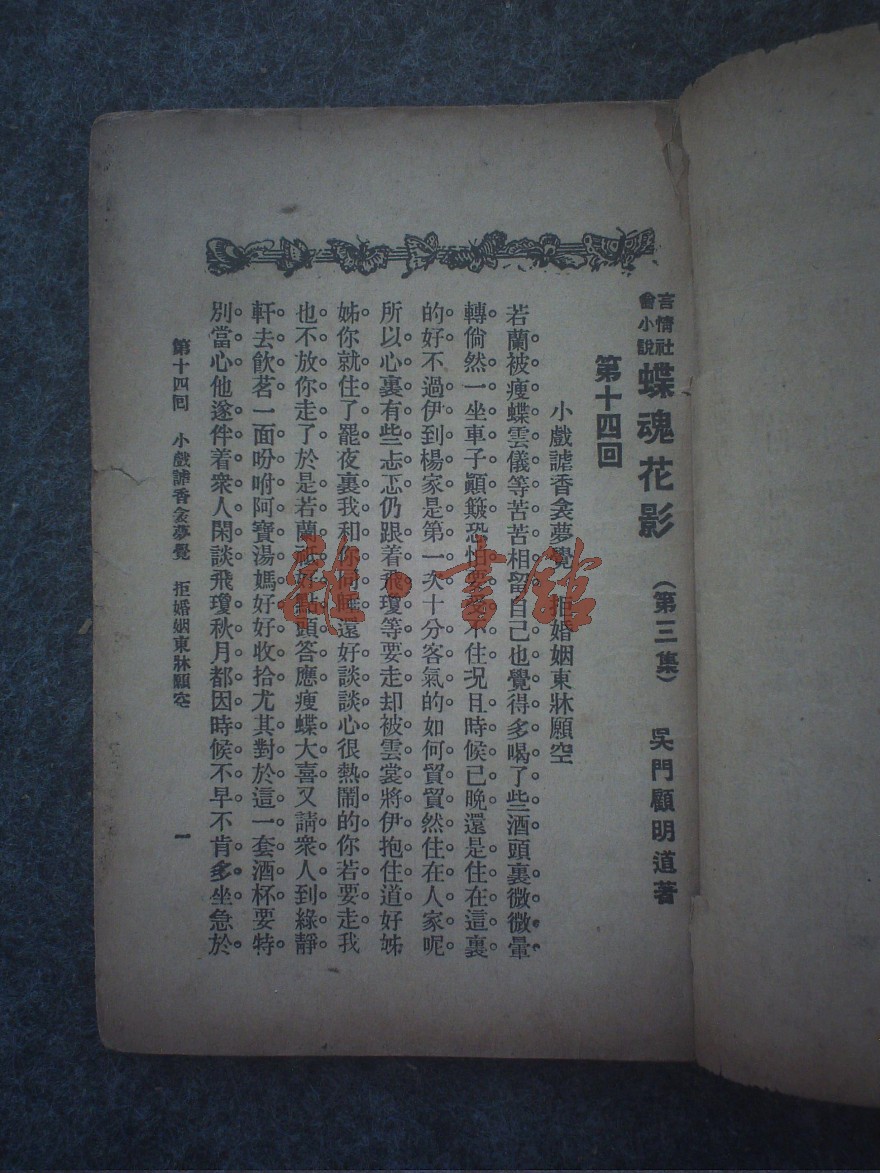 言情社會小說 蝶魂花影 (第三集) 吳門顧明道著
第十四回
小戲謔香衾夢覺 拒婚姻東牀願空
若蘭被瘦蝶雲儀等苦苦相留自己也覺得多喝了些酒頭裏微微暈
轉倘然一坐車子顚簸恐怕要受不住况且時候已晚還是住在這裏
的好不過伊到楊家是第一次十分客氣的如何貿貿然住在人家呢
所以心裏有些忐忑仍跟着飛瓊等要走却被雲裳將伊抱住道好姊
姊你就住了罷夜裏我和你同睡還好談談心很熱鬧的你若要走我
也不放你走了於是若蘭祇好點頭答應瘦蝶大喜又請衆人到綠靜
軒去飮茗一面吩咐阿寶湯媽好好收拾尤其對於這一套酒杯要特
別當心他遂伴着衆人閑談飛瓊秋月都因時候不早不肯多坐急於
第十四回 小戲謔香衾夢覺 拒婚姻東牀願空 一
雜·書館